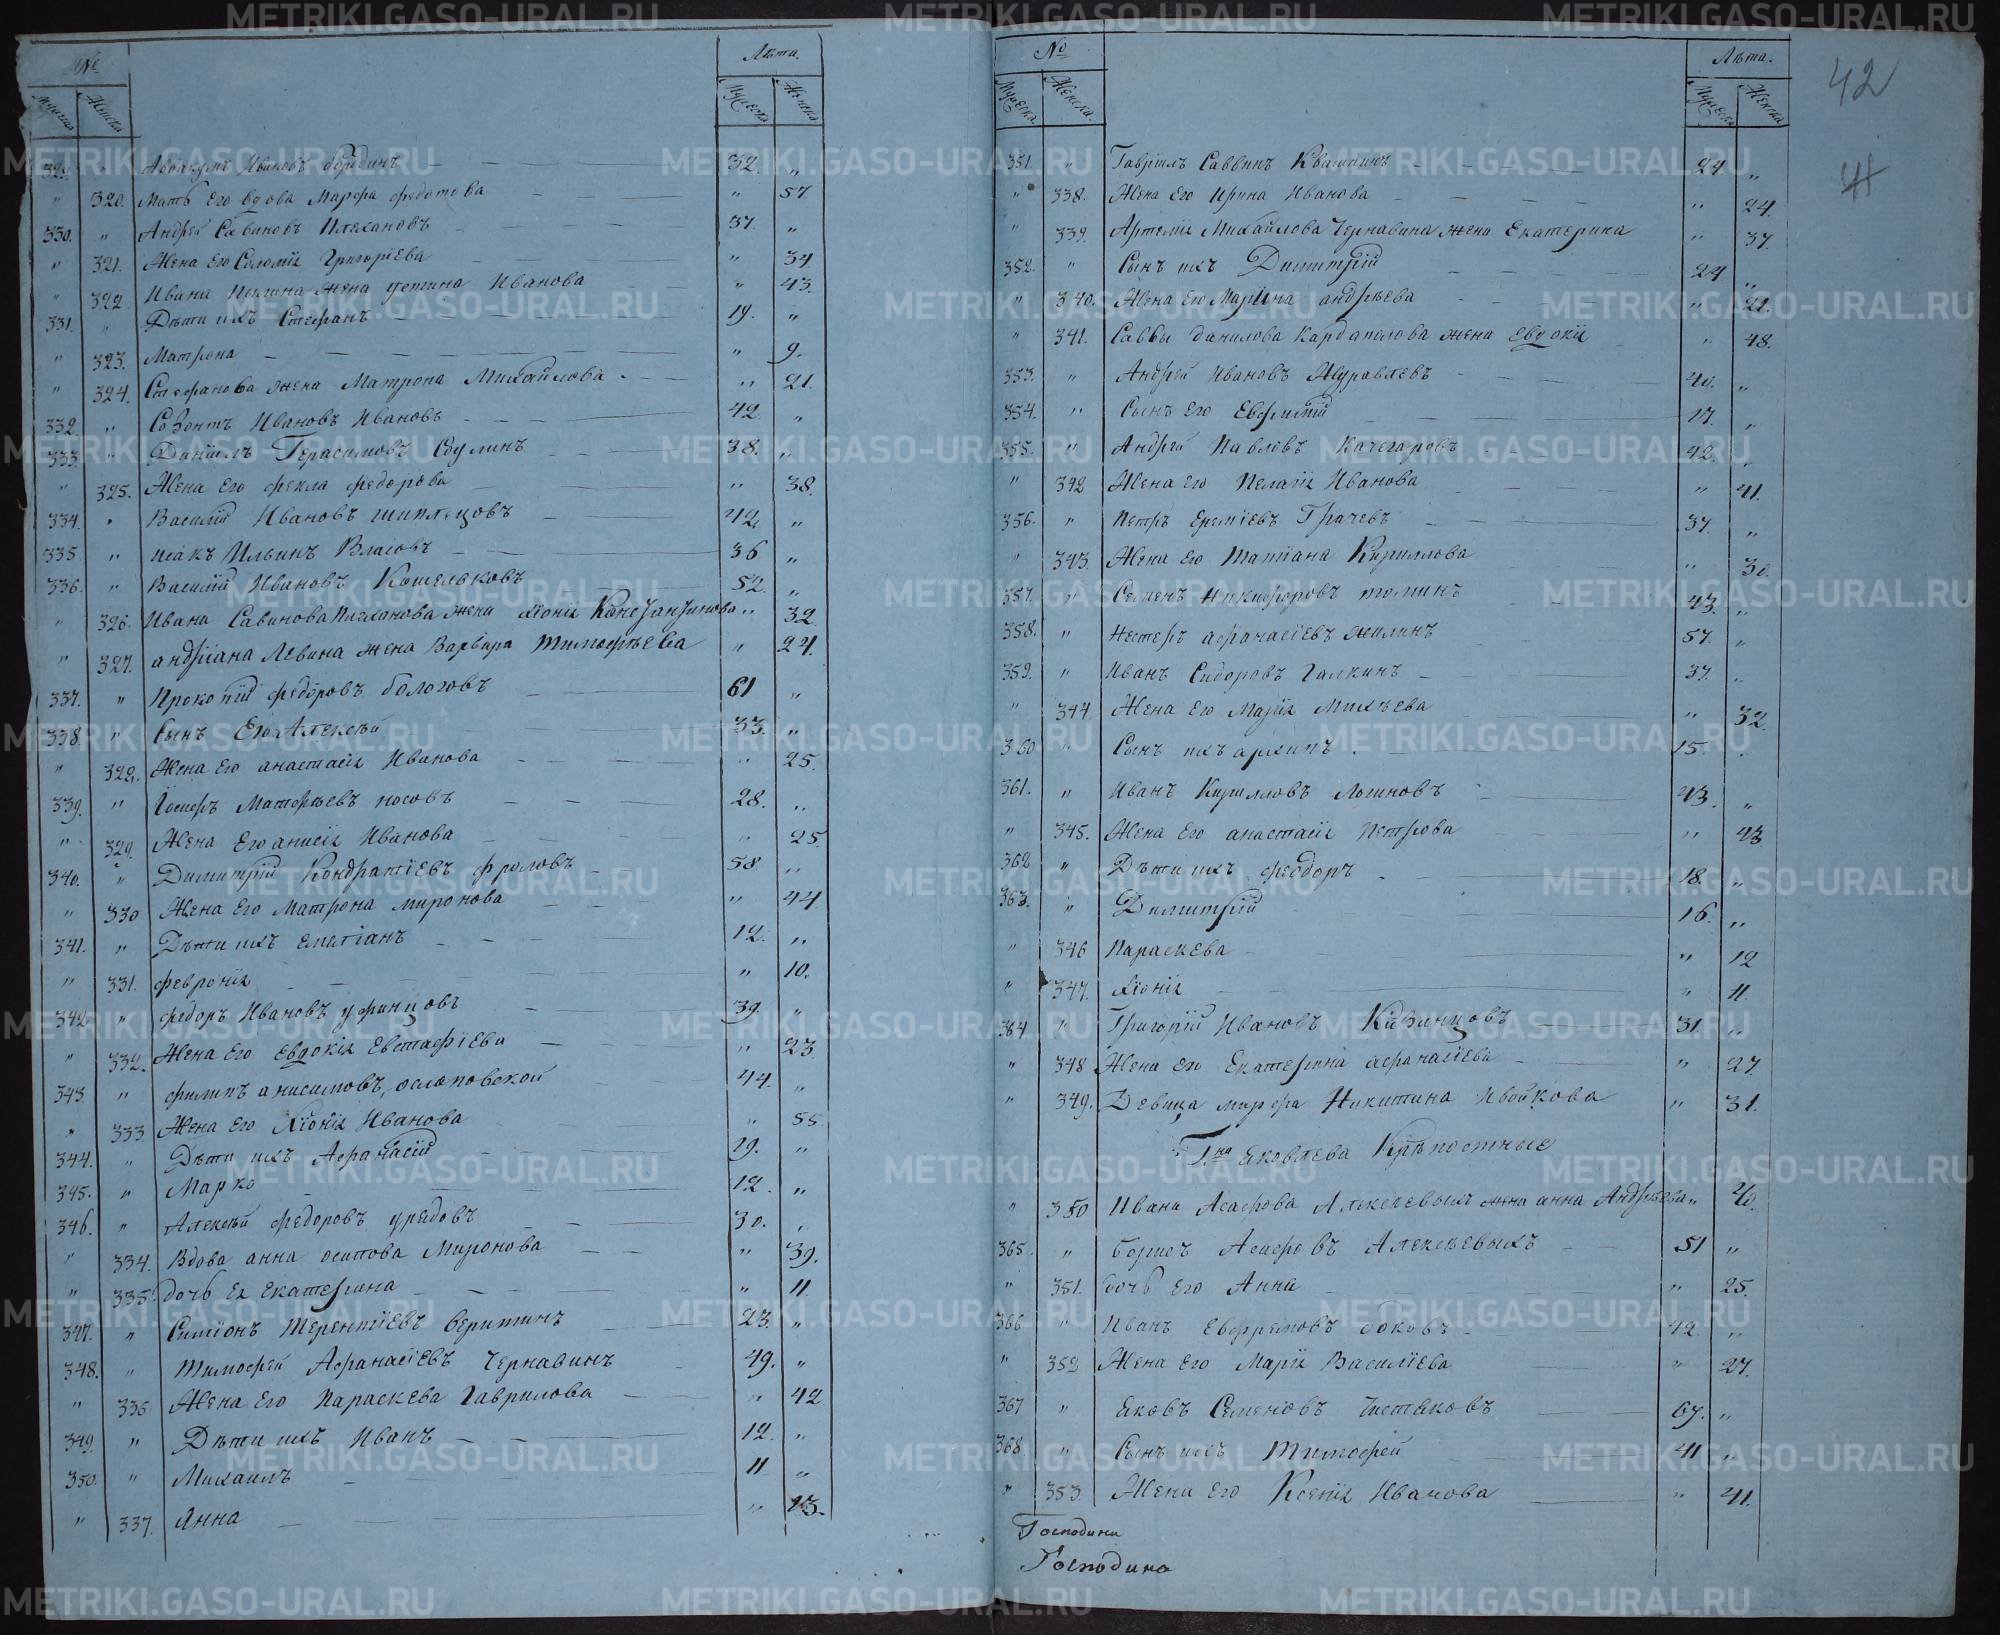 № Лѣта.
Мужеска Женска Мужеска Женска
329. " Аввакумъ Ивановъ 32. "
" 320. Мать Его вдова Марфа федотова " 57.
330. " Андрей Савиновъ Плехановъ 37. "
" 321. Жена его Соломія Григоріева " 34.
" 322. Ивана жена устина Иванова " 43.
331. " Дѣти ихъ Стефанъ 19. "
" 323. Матрона " 9.
" 324. Стефанова жена Матрона Михайлова " 21.
332. " Созонтъ Ивановъ Ивановъ 42 "
333. " Даніилъ Герасимовъ Содулинъ 38. "
" 325. Жена его фекла федорова " 38.
334. " Василій Ивановъ шиплецовъ 42. "
335 " исакъ Ильинъ Власовъ 36 "
336. " Василій Ивановъ Кошельковъ 52. "
" 326. Ивана Савинова Плеханова жена хіонія Константинова " 32.
" 327. андріана Левина жена Варвара Тимофѣева " 24.
337. " Прокопій федоровъ бологовъ 61 "
338. " Сынъ Его Алексѣй 33. "
" 328. Жена Его анастасія Иванова " 25.
339. " Іосифъ Матфѣевъ носовъ 28. "
" 329. Жена Его анисія Иванова " 25.
340. " Димитрій Кондратіевъ фроловъ 58 "
" 330 Жена Его Матрона миронова " 44
341. " Дѣти ихъ емеліанъ 12. "
" 331. февронія " 10.
342 " федоръ Ивановъ уфинцовъ 39. "
" 332. Жена Его Евдокія Евстафіева " 23
343. " филипъ анисимовъ, ослоповской 44. "
" 333. Жена Его Хіонія Иванова " 55
344. " Дѣти ихъ Афанасій 29. "
345. " Марко 12. "
346. " Алексѣй федоровъ урядовъ 30. "
" 334. Вдова анна осипова Миронова " 39.
" 335. дочь Ея Екатерина " 11
347. " Симіонъ Терентіевъ веритинъ 23. "
348. " Тимофей Афанасіевъ Чернавинъ 49. "
" 336 Жена Его Параскева Гаврилова " 42
349. " Дѣти ихъ Иванъ 12. "
350. " Михаилъ 11 "
" 337. Анна " 13.
42
№ Лѣта.
Мужеска Женска. Мужеска Женска
351. " Гавріилъ Саввинъ Квашнинъ 24. "
" 338. Жена Его Ирина Иванова " 24.
" 339. Артемія Михайлова Чернавина жена Екатерина " 37.
352. " Сынъ ихъ Димитрій 24 "
" 340. Жена Его Марина андрѣева " 21.
" 341. Саввы данилова Кардаполова жена Евдокія " 48.
353. " Андрей Ивановъ Журавлевъ 40. "
354. " Сынъ Его Евфимій 17. "
355. " Андрей Павловъ Качегаровъ 42. "
" 342 Жена его Пелагія Иванова " 41.
356. " Петръ еремѣевъ Грачевъ 37. "
" 343. Жена Его Татіана Кириллова " 30.
357. " Семенъ Никифоровъ 43. "
358. " Нестеръ афанасіевъ жилинъ 57. "
359. " Иванъ Сидоровъ Галкинъ 37. "
" 344. Жена Его Марія Михѣева " 32
360 " Сынъ ихъ архипъ 15. "
361. " Иванъ Кирилловъ Логиновъ 43. "
" 345. Жена Его анастасія Петрова " 43
362 " Дѣти ихъ Феодоръ 18. "
363. " Димитрій 16. "
" 346 Параскева " 12
" 347. хіонія " 11.
364 " Григорій Ивановъ Казанцовъ 31. "
" 348 Жена Его Екатерина афанасіева " 27
" 349. Девица марфа Никитина Ивойкова " 31.
Г.на Яковлева Крѣпостные
" 350 Ивана Асафова Алексеевыхъ жена анна Андрѣева " 40.
365. " борисъ Асафовъ Алексѣевыхъ 51 "
" 351. дочь Его Анна " 25.
366 " Иванъ Евфремовъ боковъ 42. "
" 352 Жена Его Марія Василіева " 27.
367 " Яковъ Семеновъ Чистяковъ 67. "
368. " Сынъ ихъ Тимофей 41 "
" 353. Жена Его Ксенія Иванова " 41.
Господина
Господина